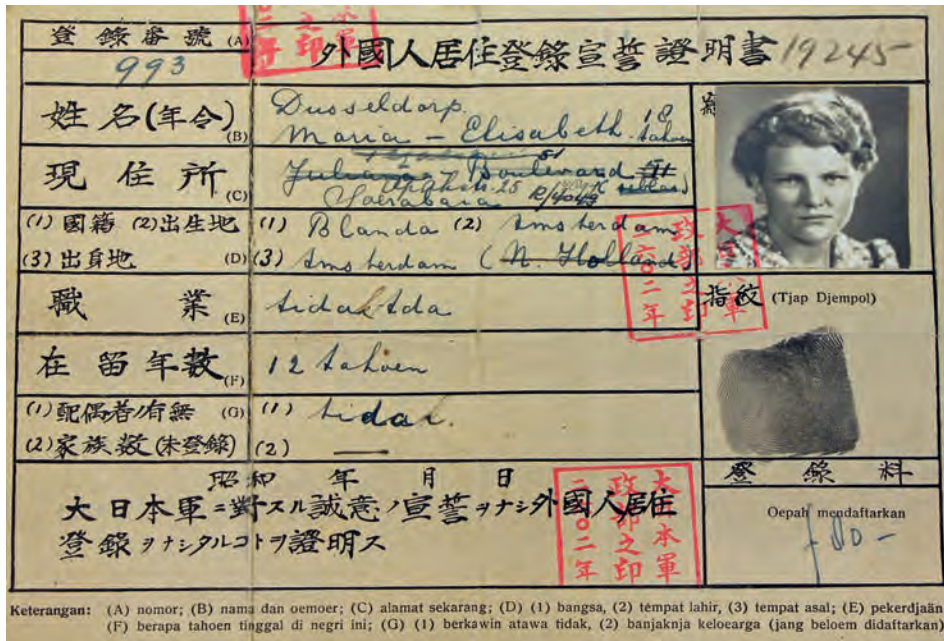 登錄番號 (A)
993
外國人居住登錄宣誓證明書 19245
姓名(年令) (B)
Dusseldorp.
Maria - Elisabeth. 18 tahon
現住所 (C)
Boulevard
Soerabaia
(1) 國籍 (2) 出生地
(3) 出身地 (D)
(1) Blanda (2) Amsterdam
(3) Amsterdam (N. Holland)
職業 (E)
tidak Ada
在留年数 (F)
12 tahoen
(1) 配偶者ノ有無 (G)
(2) 家族数 (未登錄)
(1) tidak.
(2) —
指紋 (Tjap Djempol)
昭和 年 月 日
大日本軍ニ對スル誠意ノ宣誓ヲナシ外國人居住
登錄ヲナシタルコトヲ證明ス
大日本軍
政部之印
二六〇二年
登錄料
Oepah mendaftarkan
f 80 -
Keterangan: (A) nomor; (B) nama dan oemoer; (C) alamat sekarang; (D) (1) bangsa, (2) tempat lahir, (3) tempat asal; (E) pekerdjaän
(F) berapa tahoen tinggal di negri ini; (G) (1) berkawin atawa tidak, (2) banjaknja keloearga (jang beloem didaftarkan)